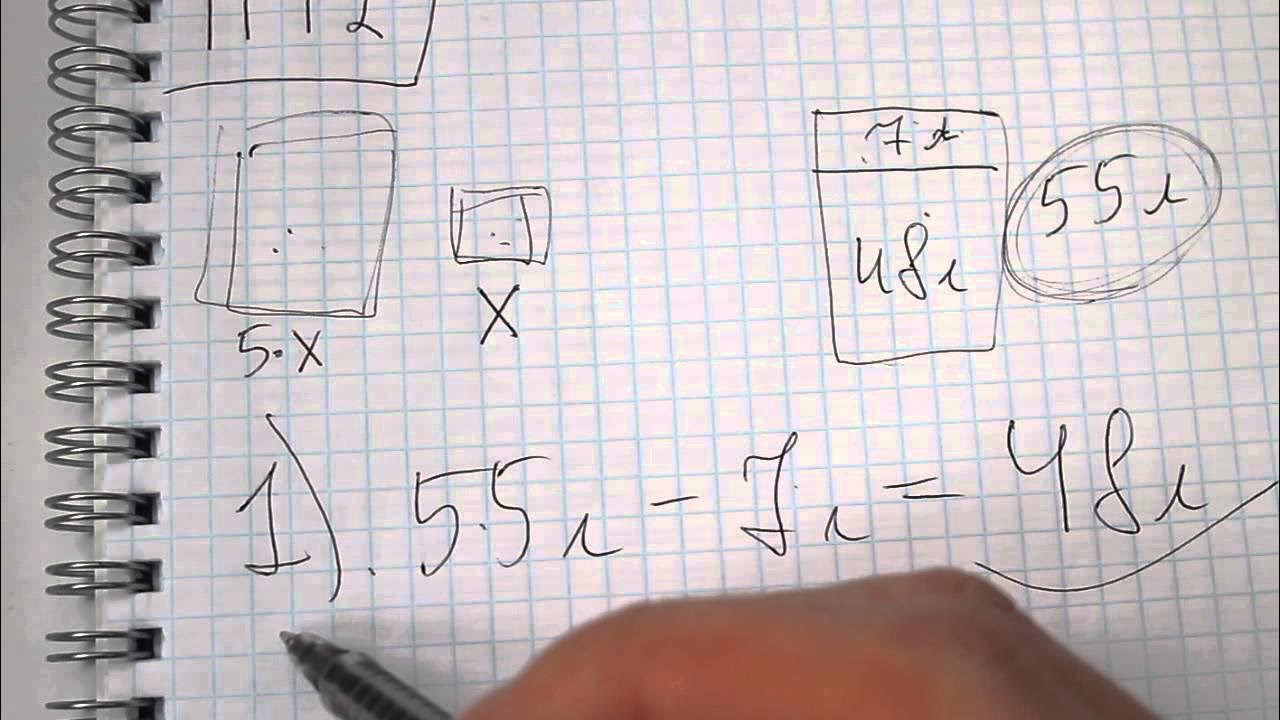 7л
48л
55л
5·X
X
1). 55л - 7л = 48л